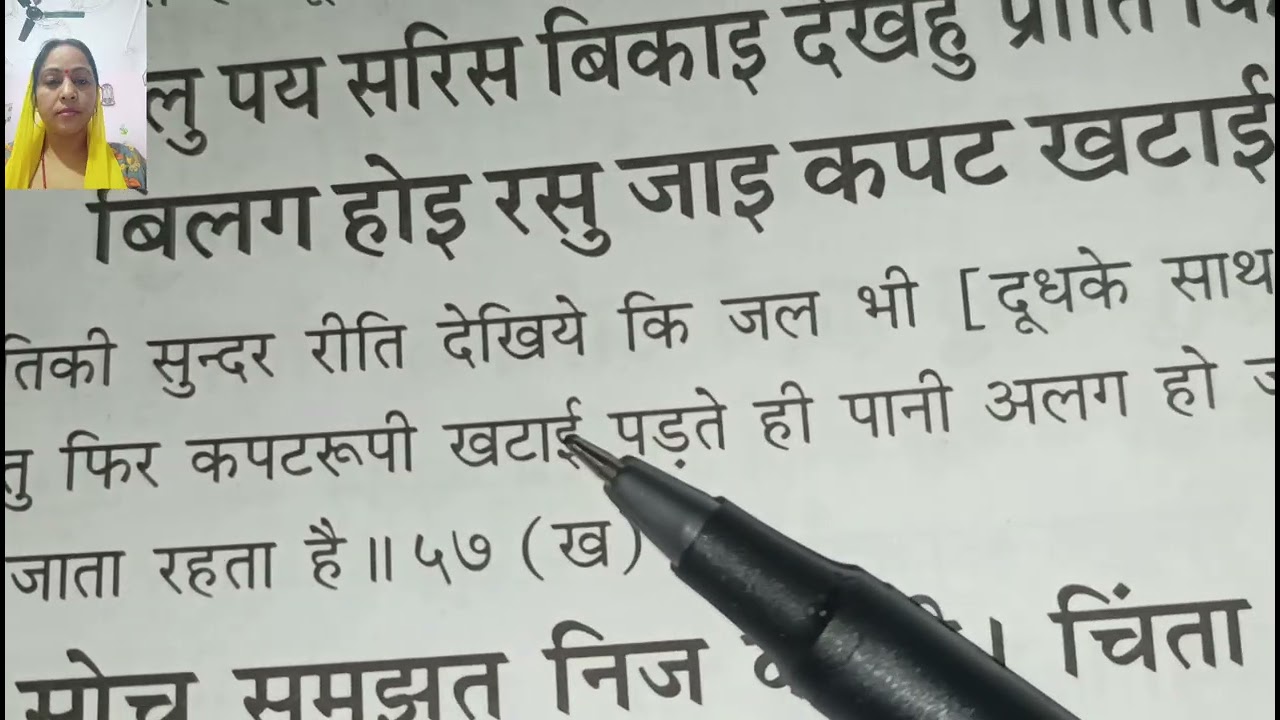 लु पय सरिस बिकाइ देखहु प्रीति
बिलग होइ रसु जाइ कपट खटाई
तिकी सुन्दर रीति देखिये कि जल भी [ दूधके साथ
तु फिर कपटरूपी खटाई पड़ते ही पानी अलग हो
जाता रहता है ॥ ५७ ( ख )
सोच समुझत निज । चिंता